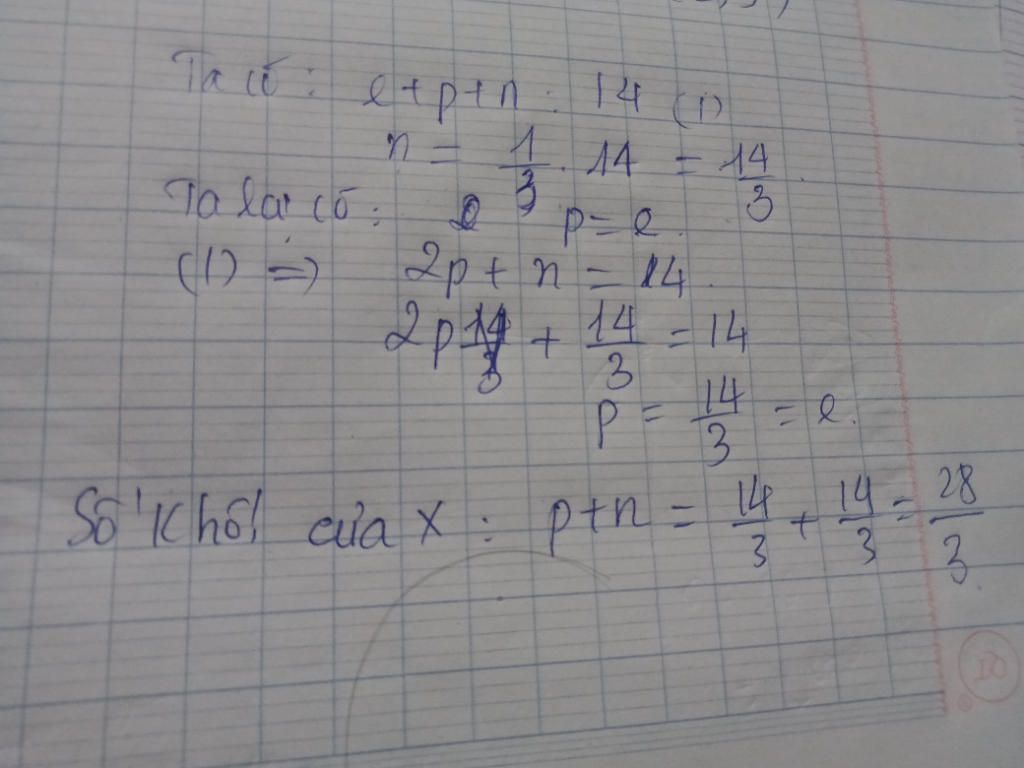 Ta có: e+p+n: 14 (1)
n = 1/3 . 14 = 14/3.
Ta lại có: p = e.
(1) => 2p + n = 14.
2p + 14/3 = 14
p = 14/3 = e.
Số khối của X: p+n = 14/3 + 14/3 = 28/3